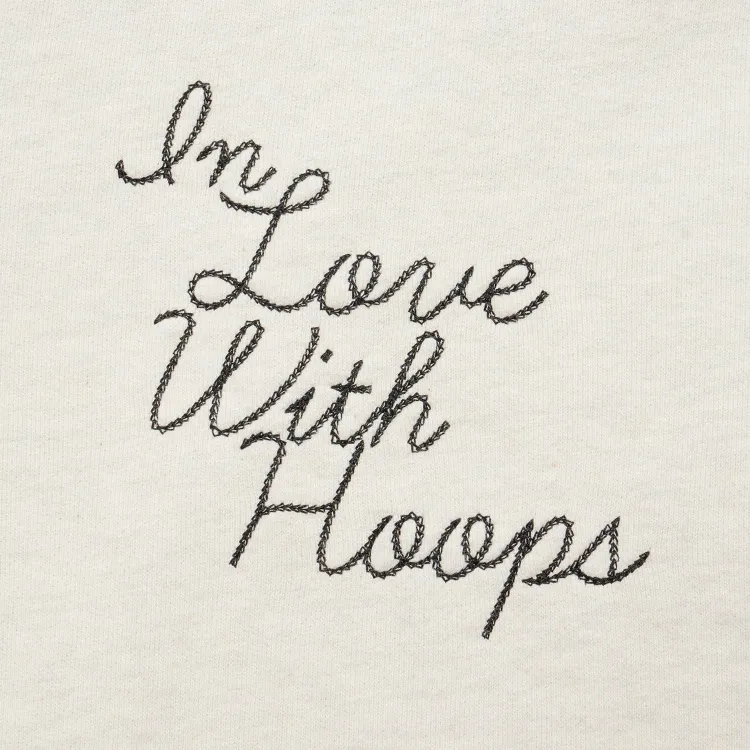 In
Love
With
Hoops